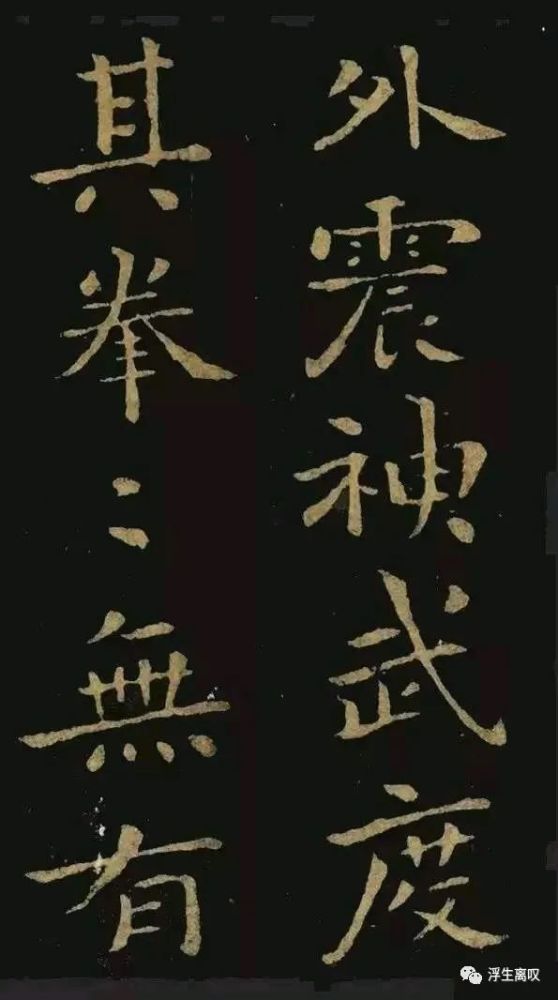 外震神武度
其拳〻無有
浮生离叹